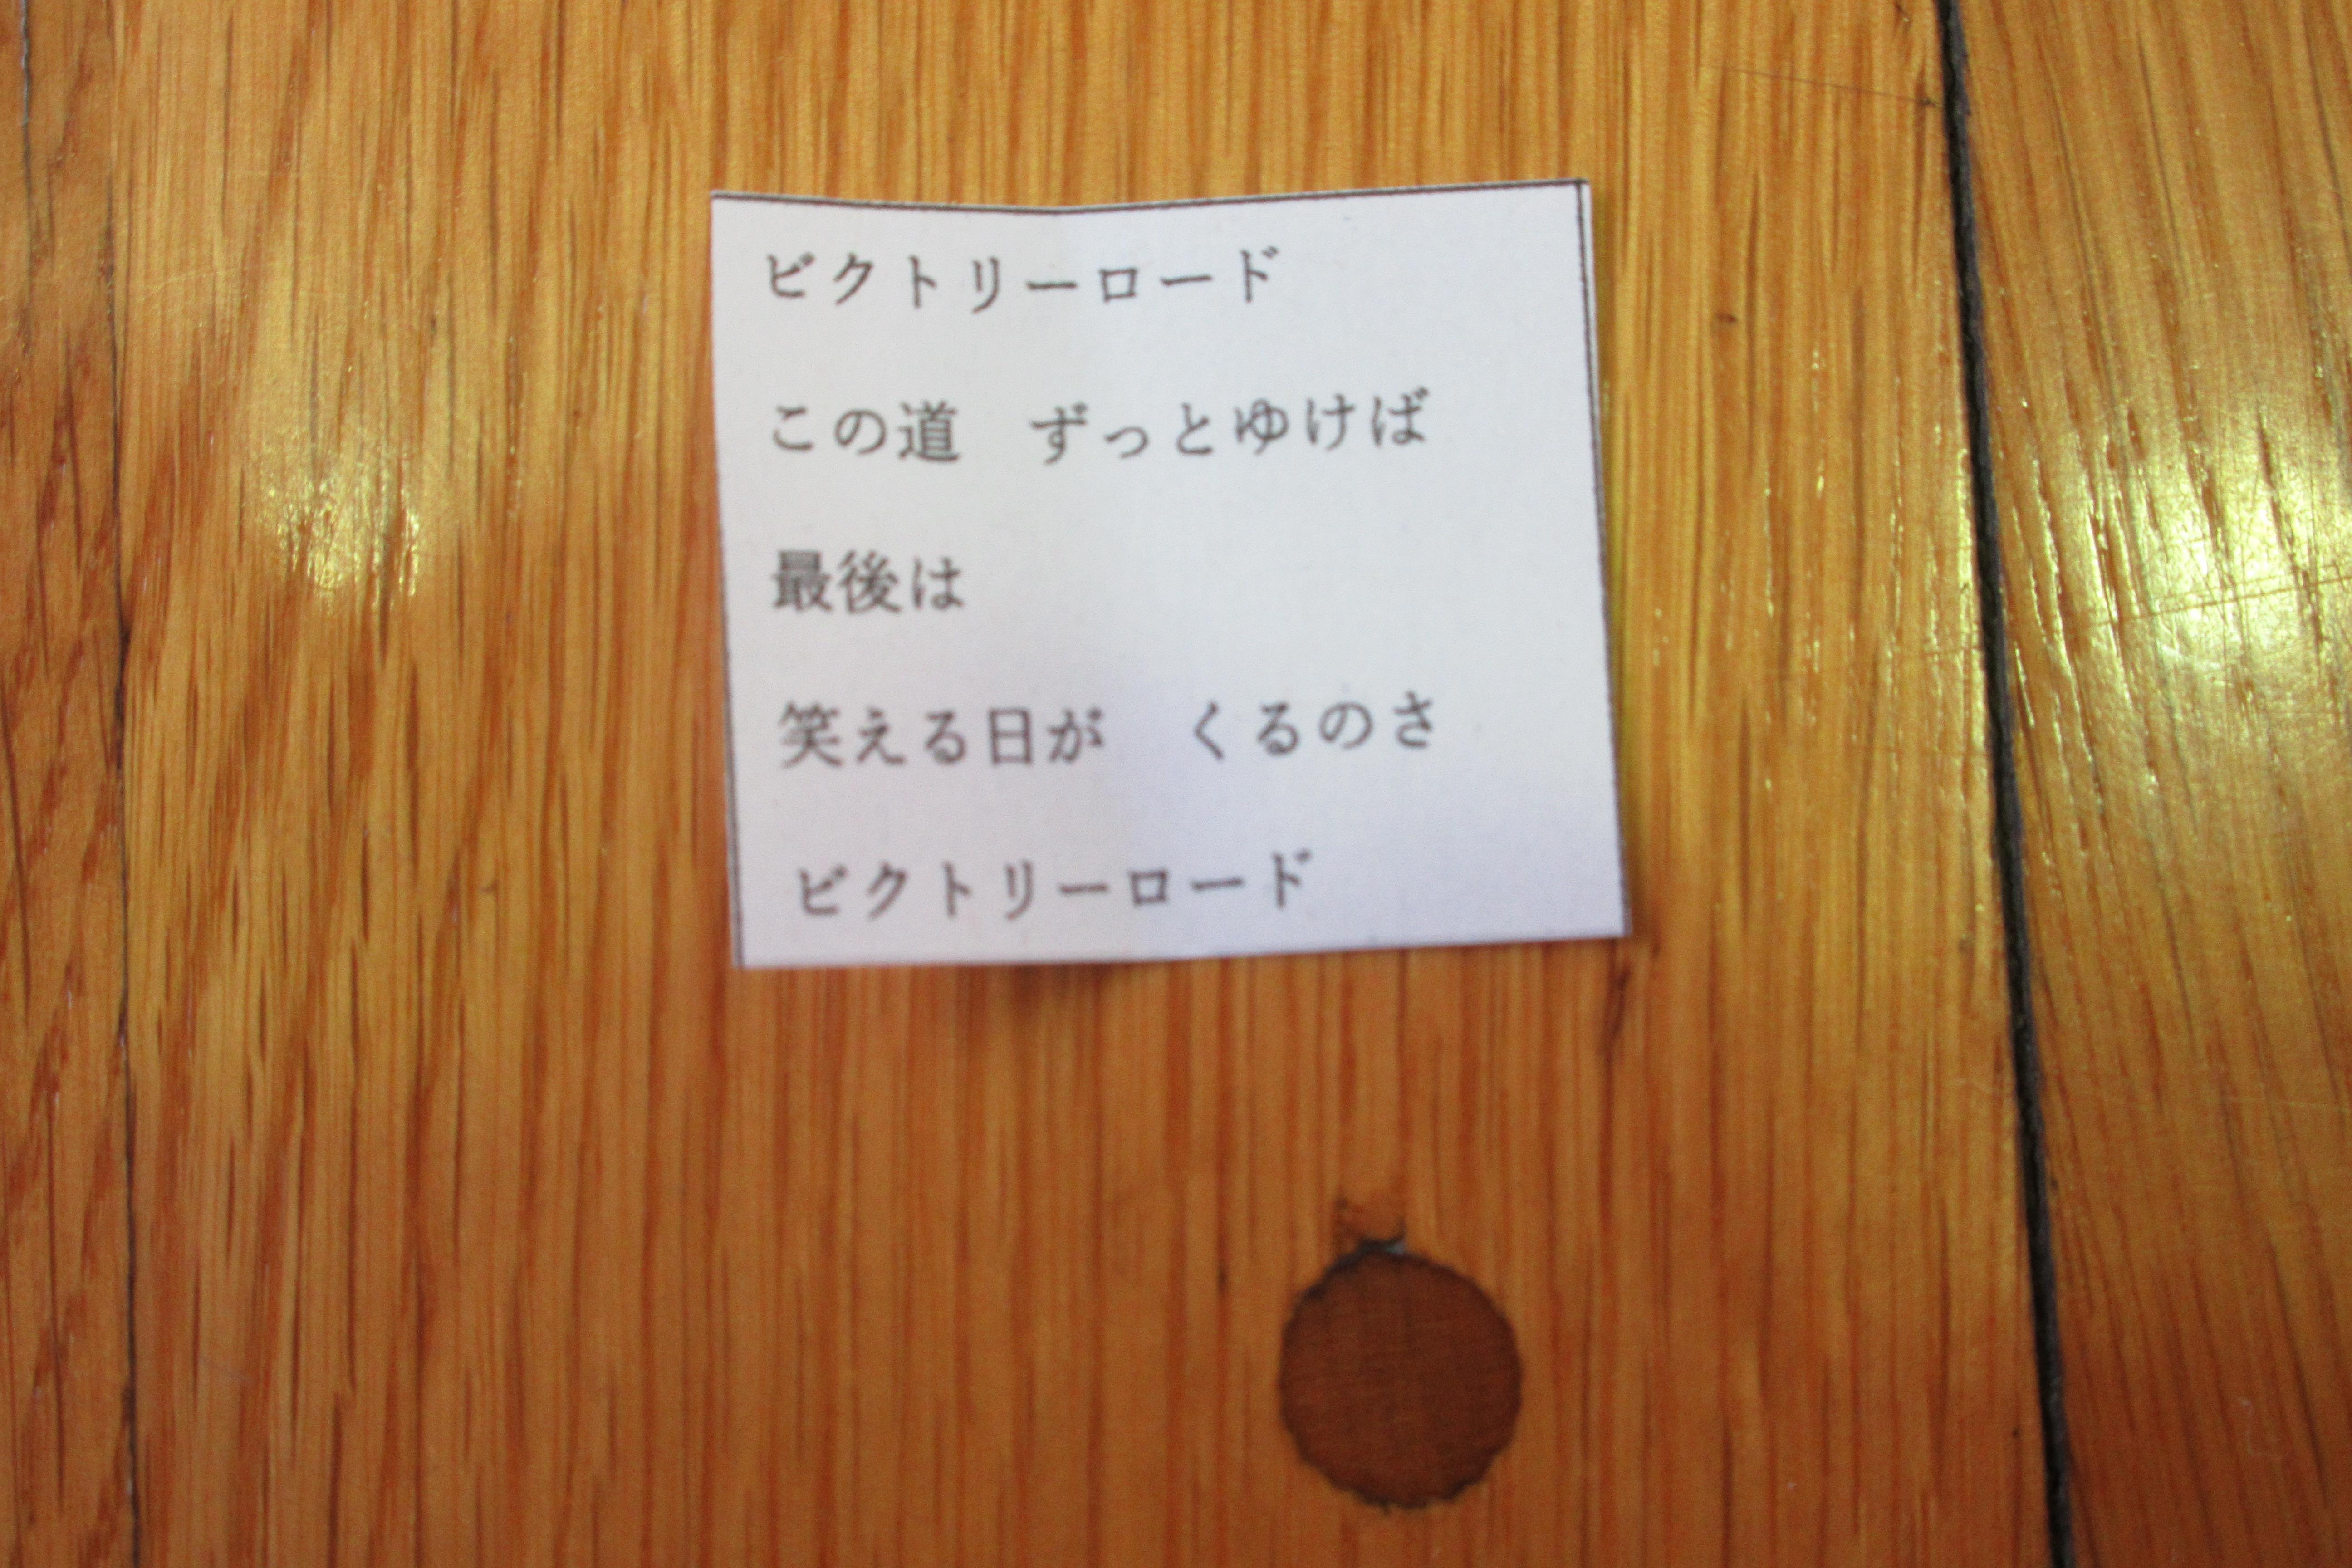 ビクトリーロード
この道　ずっとゆけば
最後は
笑える日が　くるのさ
ビクトリーロード